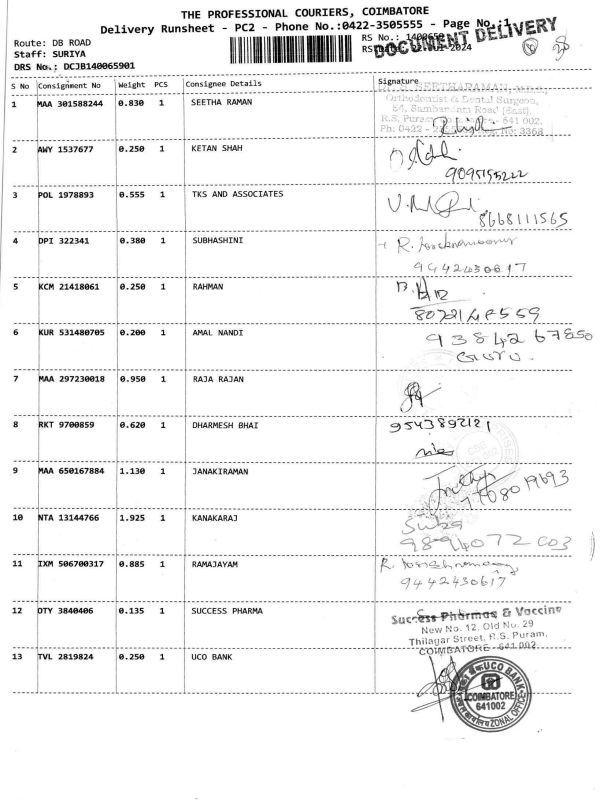 THE PROFESSIONAL COURIERS, COIMBATORE
Delivery Runsheet - PC2 - Phone No.:0422-3505555 - Page No.:1
DOCUMENT DELIVERY
Route: DB ROAD
RS No.: 1400659
Staff: SURIYA
DRS No.: DCJB140065901
S No Consignment No Weight PCS Consignee Details Signature
1 MAA 301588244 0.830 1 SEETHA RAMAN
SEETHARAMAN, M.D.S.,
Orthodontist & Dental Surgeon,
54, Sambandam Road (East),
R.S. Puram 641 002.
Ph: 0422 - No: 3368
2 AWY 1537677 0.250 1 KETAN SHAH
9095155222
3 POL 1978893 0.555 1 TKS AND ASSOCIATES
8668111565
4 DPI 322341 0.380 1 SUBHASHINI
9442430617
5 KCM 21418061 0.250 1 RAHMAN
6 KUR 531480705 0.200 1 AMAL NANDI
93842 67850
7 MAA 297230018 0.950 1 RAJA RAJAN
8 RKT 9700859 0.620 1 DHARMESH BHAI
9543892121
9 MAA 650167884 1.130 1 JANAKIRAMAN
7708019693
10 NTA 13144766 1.925 1 KANAKARAJ
Suba
9894072003
11 IXM 506700317 0.885 1 RAMAJAYAM
9442430617
12 OTY 3840406 0.135 1 SUCCESS PHARMA
Success Pharmas & Vaccins
New No. 12, Old No. 29
Thilagar Street, R.S. Puram,
COIMBATORE - 641 002
13 TVL 2819824 0.250 1 UCO BANK
UCO BANK
COIMBATORE
641002
ZONAL OFFICE